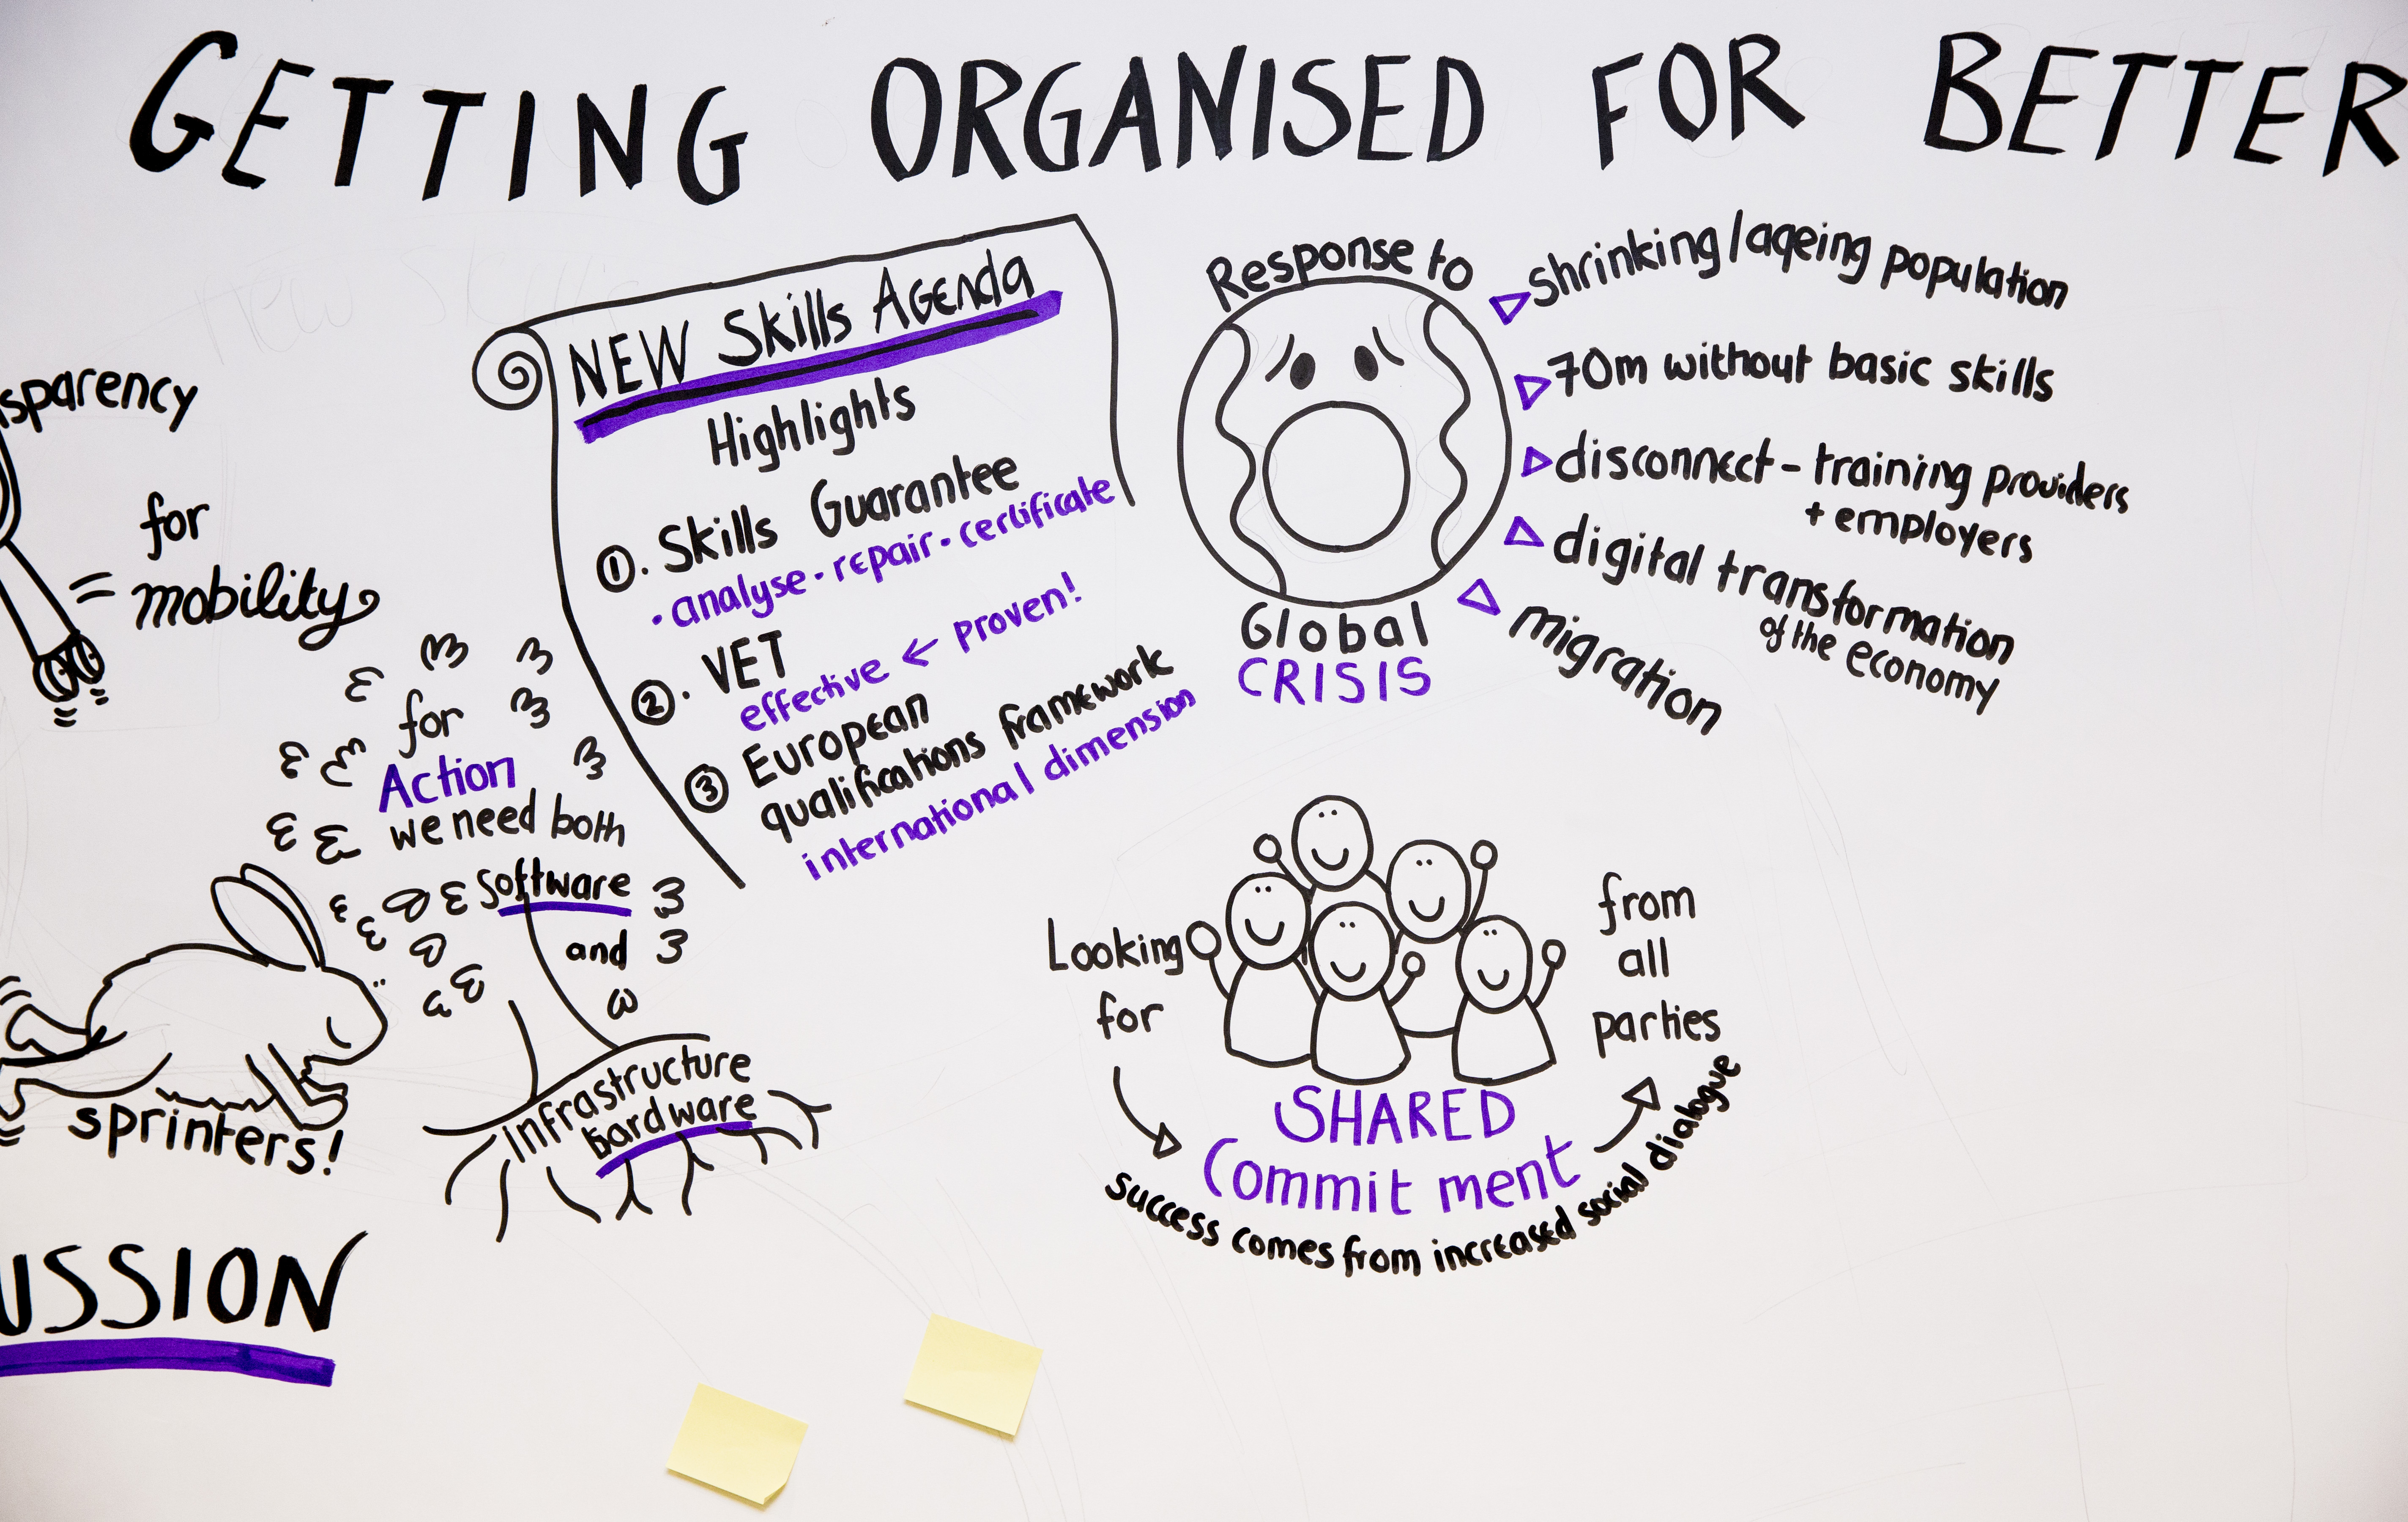 GETTING ORGANISED FOR BETTER
sparency
for
= mobility
for
Action
we need both
software
and
infrastructure
hardware
sprinters!
USSION
NEW Skills Agenda
Highlights
①. Skills Guarantee
• analyse • repair • certificate
②. VET
effective ← proven!
③ European
qualifications framework
international dimension
Response to
Global
CRISIS
shrinking/ageing population
70m without basic skills
disconnect - training providers
+ employers
digital transformation
of the economy
migration
Looking
for
SHARED
Commitment
from
all
parties
success comes from increased social dialogue